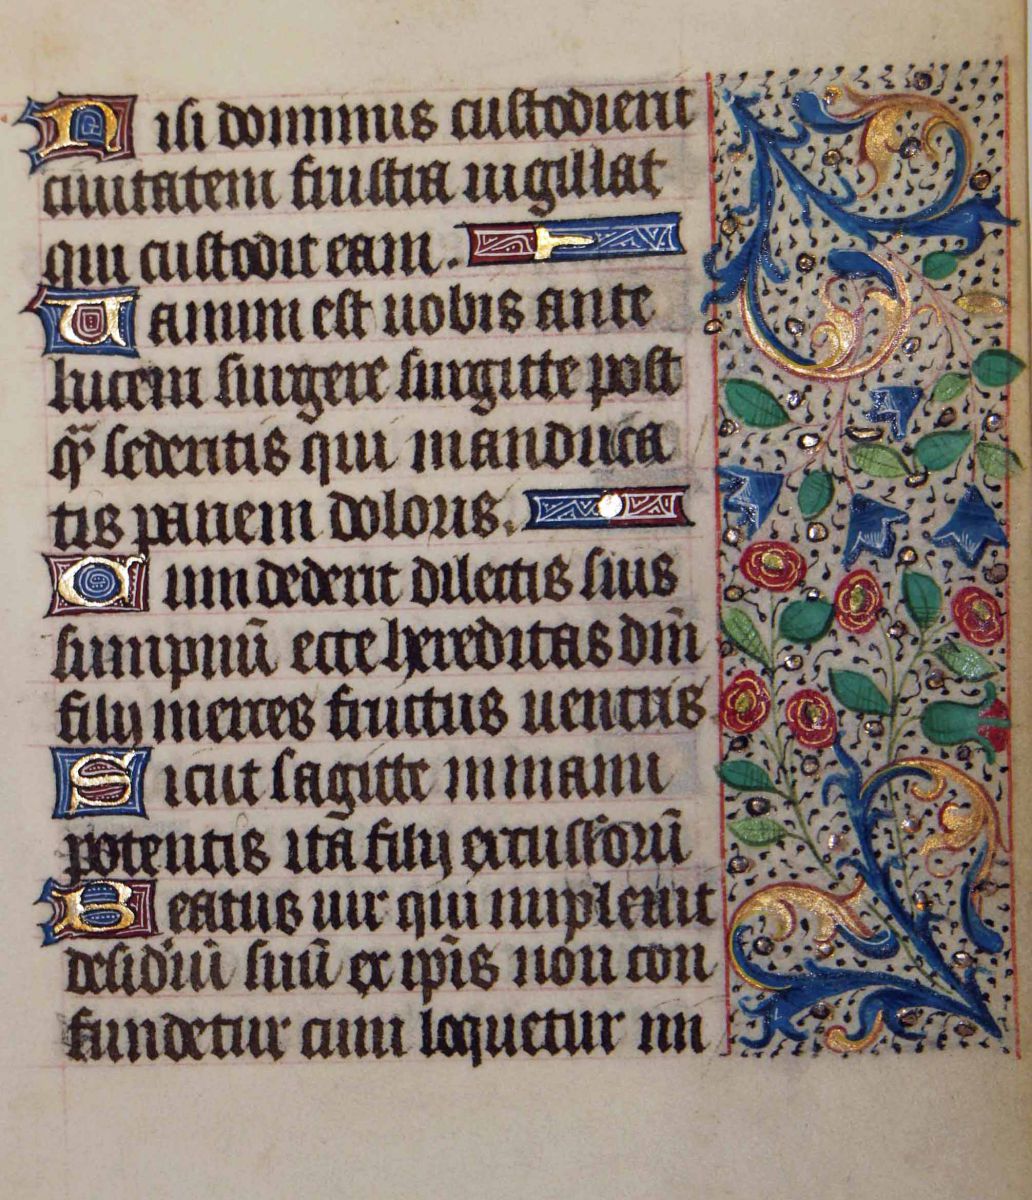 Nisi dominus custodierit
ciuitatem frustra uigillat
qui custodit eam.
Uanum est uobis ante
lucem surgere surgitte post
q̃ sederitis qui manduca
tis panem doloris.
Cum dederit dilectis suis
sumpnũ ecce hereditas dñi
filij merces fructus uentris
Sicut sagitte in manu
potentis ita filij excussorũ
Beatus uir qui impleuit
desid'iũ suũ ex ip̃is non con
fundetur cum loquetur ini